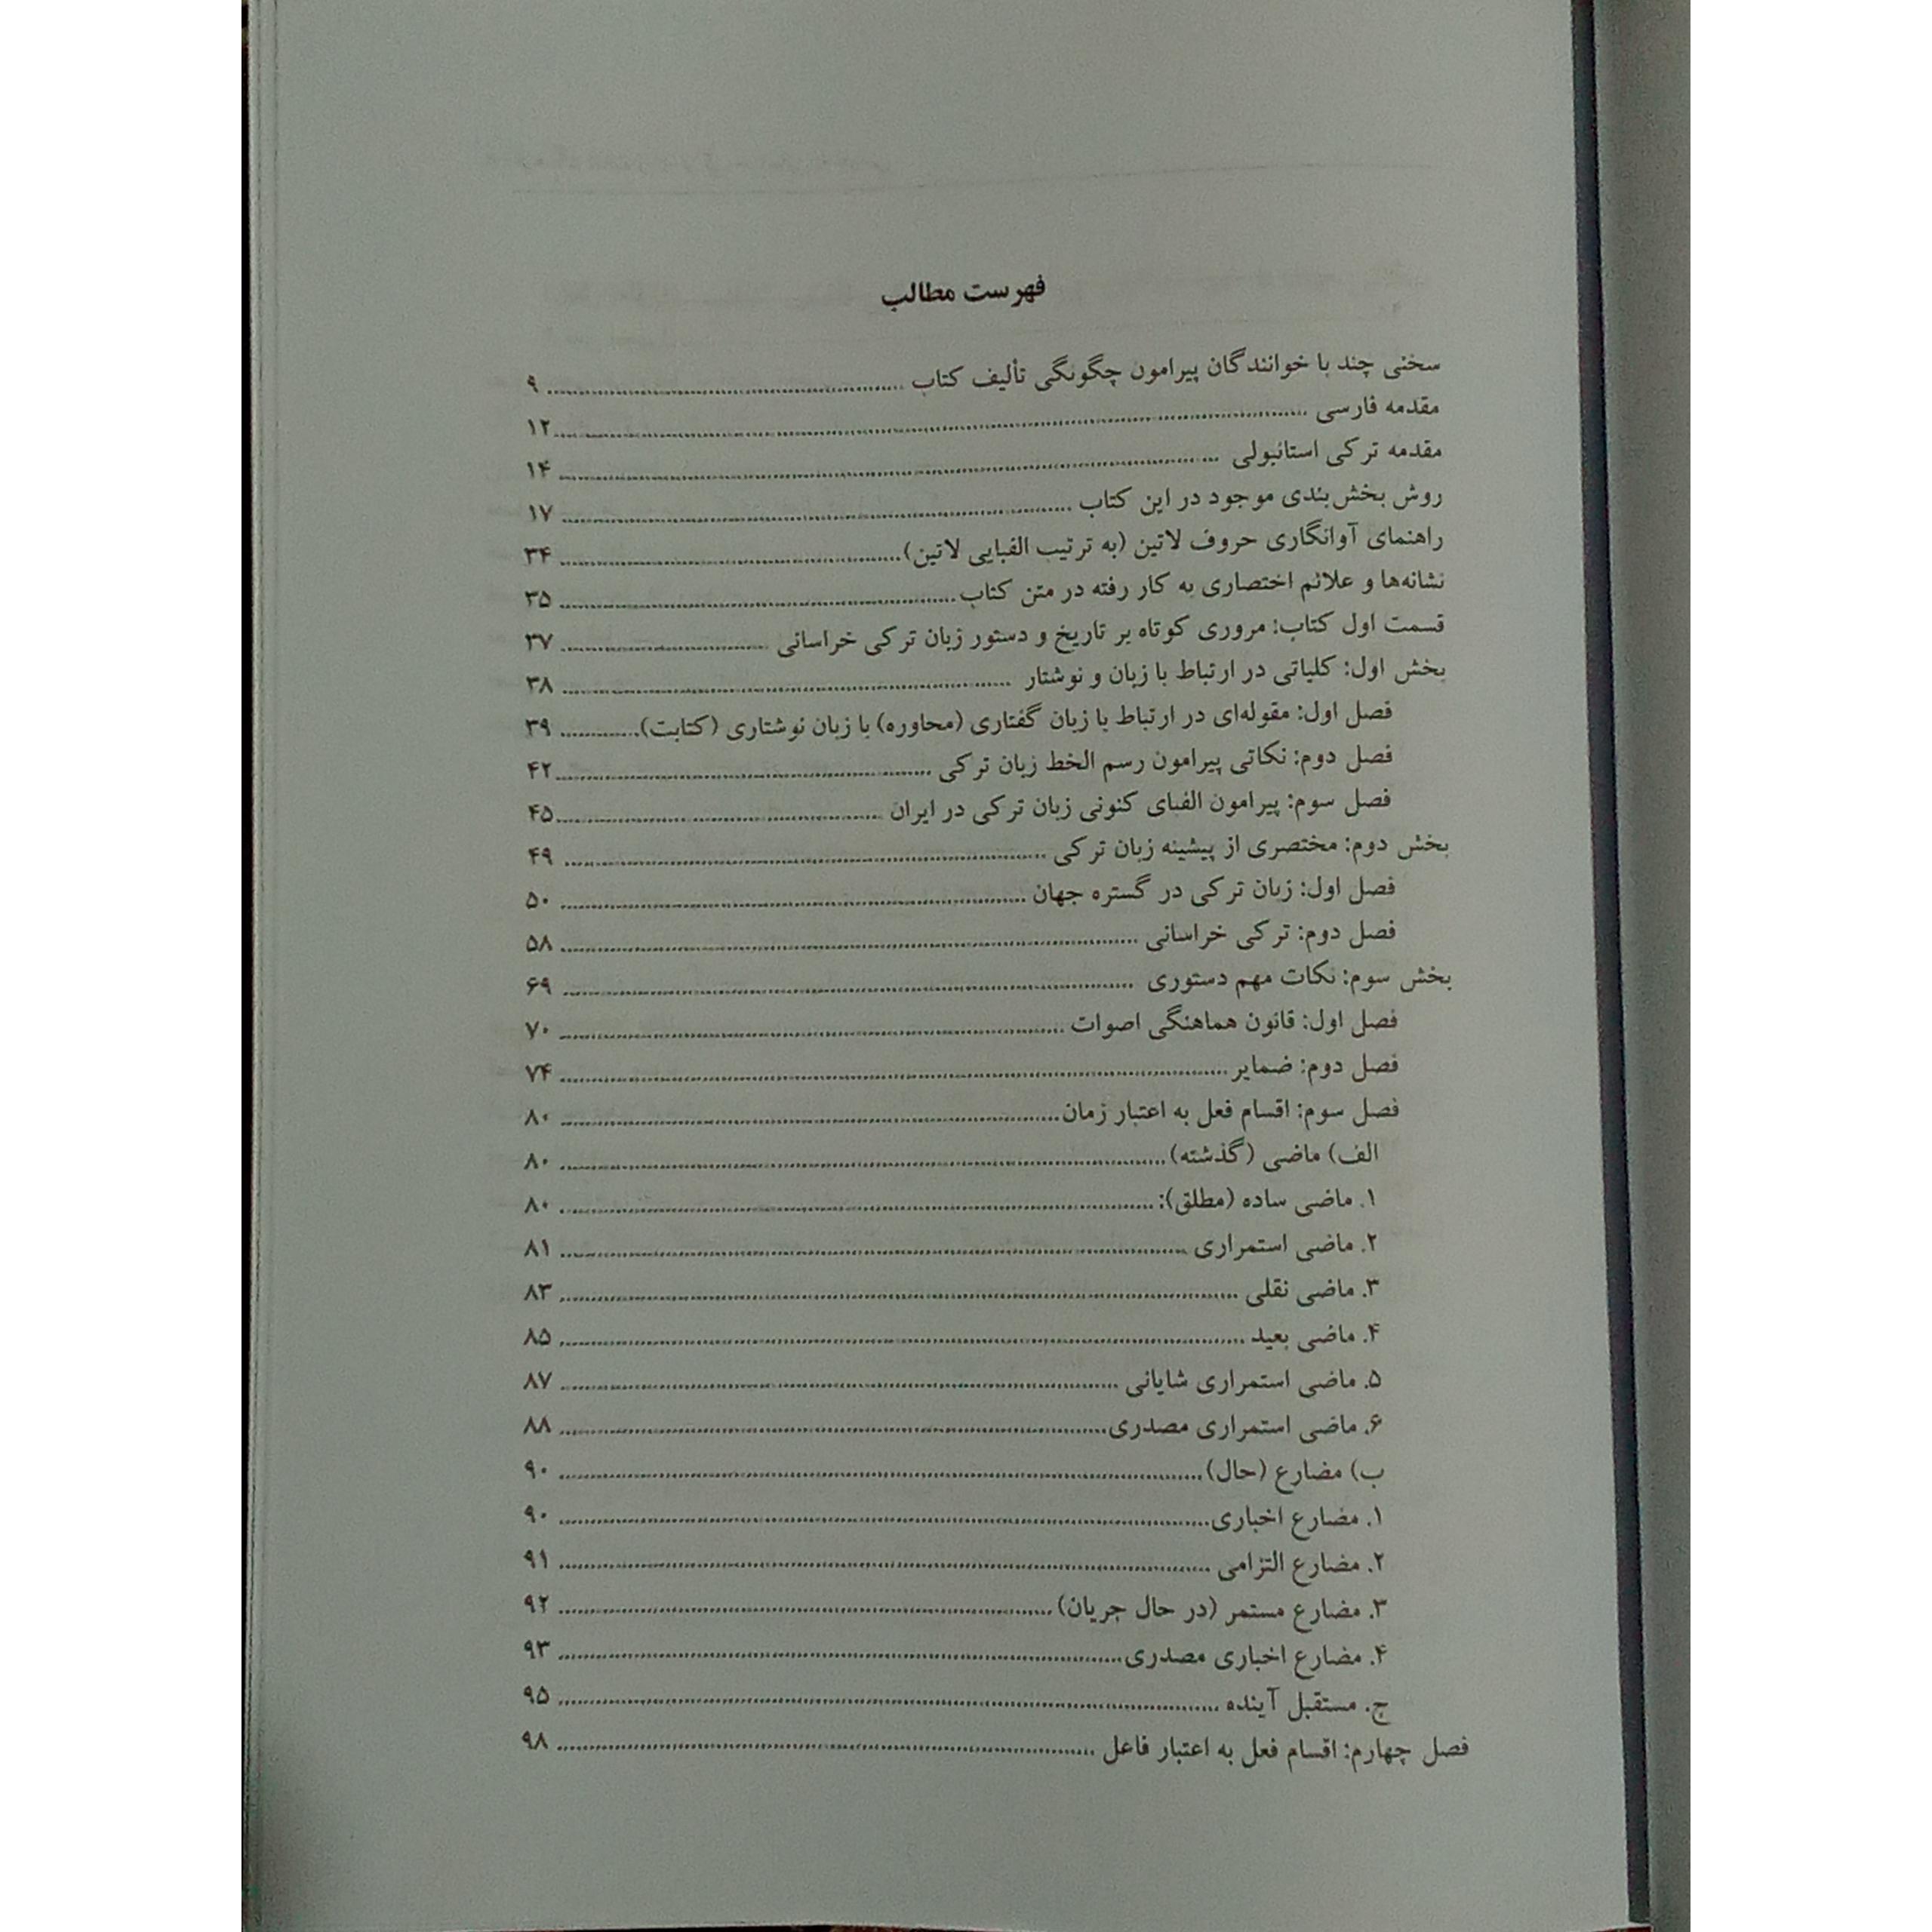 فهرست مطالب
سخنی چند با خوانندگان پیرامون چگونگی تألیف کتاب ........ ۹
مقدمه فارسی ........ ۱۲
مقدمه ترکی استانبولی ........ ۱۴
روش بخش‌بندی موجود در این کتاب ........ ۱۷
راهنمای آوانگاری حروف لاتین (به ترتیب الفبایی لاتین) ........ ۳۴
نشانه‌ها و علائم اختصاری به کار رفته در متن کتاب ........ ۳۵
قسمت اول کتاب: مروری کوتاه بر تاریخ و دستور زبان ترکی خراسانی ........ ۳۷
بخش اول: کلیاتی در ارتباط با زبان و نوشتار ........ ۳۸
فصل اول: مقوله‌ای در ارتباط با زبان گفتاری (محاوره) با زبان نوشتاری (کتابت) ........ ۳۹
فصل دوم: نکاتی پیرامون رسم الخط زبان ترکی ........ ۴۲
فصل سوم: پیرامون الفبای کنونی زبان ترکی در ایران ........ ۴۵
بخش دوم: مختصری از پیشینه زبان ترکی ........ ۴۹
فصل اول: زبان ترکی در گستره جهان ........ ۵۰
فصل دوم: ترکی خراسانی ........ ۵۸
بخش سوم: نکات مهم دستوری ........ ۶۹
فصل اول: قانون هماهنگی اصوات ........ ۷۰
فصل دوم: ضمایر ........ ۷۴
فصل سوم: اقسام فعل به اعتبار زمان ........ ۸۰
الف) ماضی (گذشته) ........ ۸۰
۱. ماضی ساده (مطلق): ........ ۸۰
۲. ماضی استمراری ........ ۸۱
۳. ماضی نقلی ........ ۸۳
۴. ماضی بعید ........ ۸۵
۵. ماضی استمراری شایانی ........ ۸۷
۶. ماضی استمراری مصدری ........ ۸۸
ب) مضارع (حال) ........ ۹۰
۱. مضارع اخباری ........ ۹۰
۲. مضارع التزامی ........ ۹۱
۳. مضارع مستمر (در حال جریان) ........ ۹۲
۴. مضارع اخباری مصدری ........ ۹۳
ج. مستقبل آینده ........ ۹۵
فصل چهارم: اقسام فعل به اعتبار فاعل ........ ۹۸